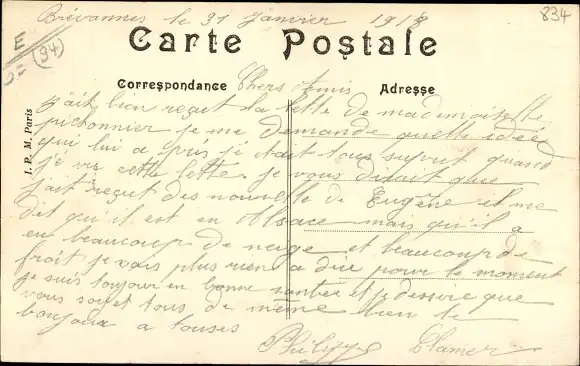 Brévannes le 31 janvier 1918
834
E
(94)
Carte Postale
Correspondance Chers Amis Adresse
J. P. M. Paris
j'ait bien reçut la lette de mademoiselle
pichonnier je me demande quelle idée
qui lui a pris j'etait tous suprit quand
j'é vu cette lette je vous dirait que
j'ait reçut des nouvelle de Eugène il me
dit qu'il est en Alsace mais qu'il a
eu beaucoup de neige et beaucoup de
froit je vais plus rien a dire pour le moment
je suis toujour en bonne santée et je dessire que
vous soyet tous de même bien le
bonjour a touses
Philippe Clamer